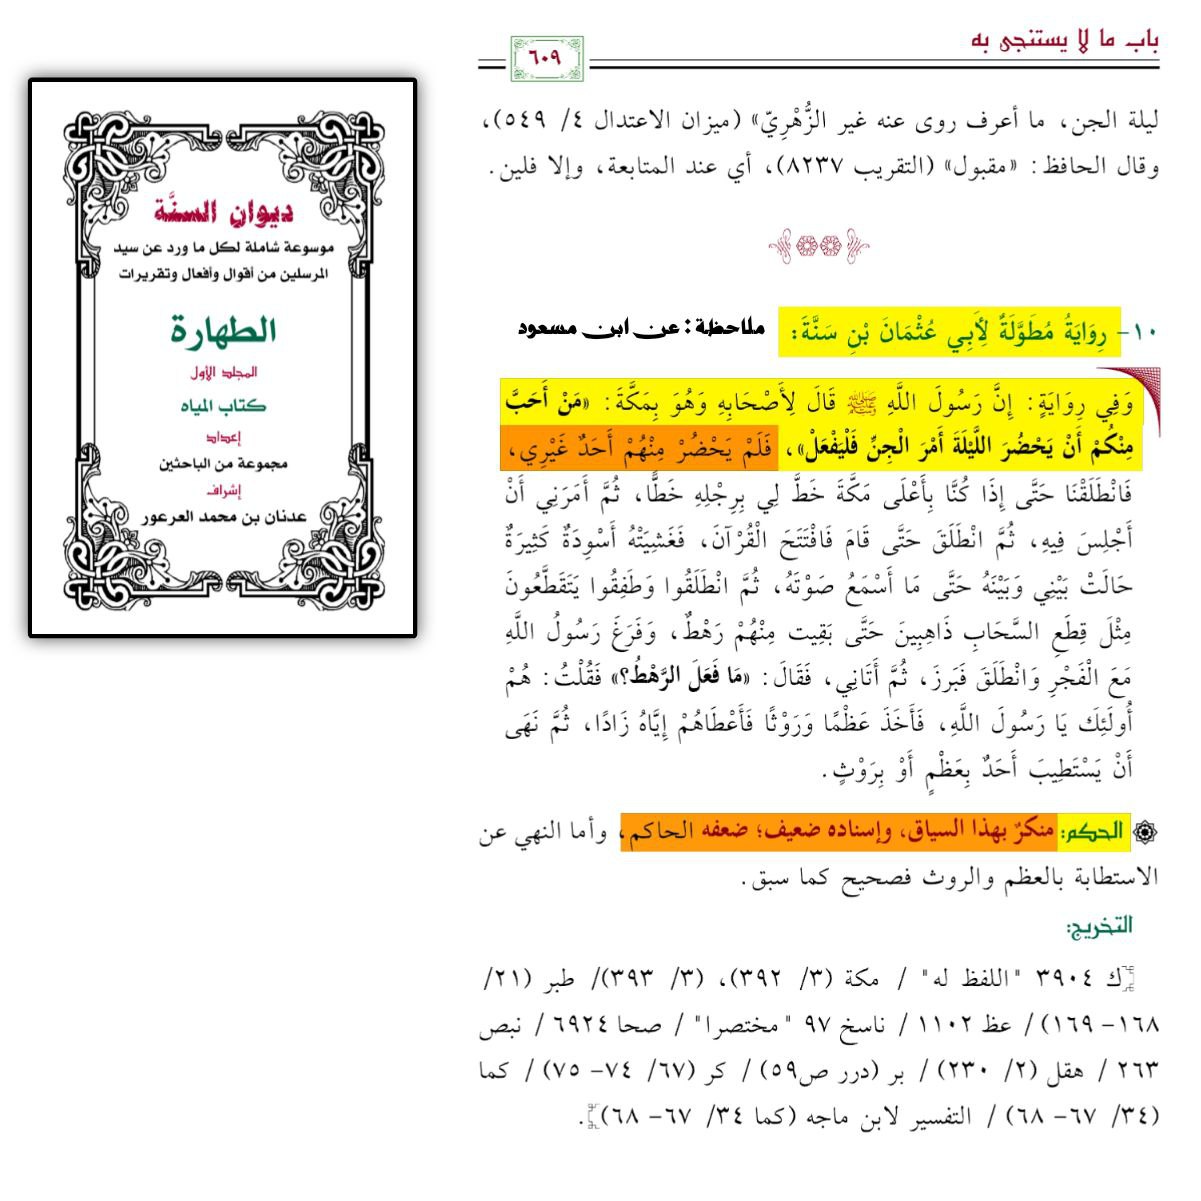 باب ما لا يستنجى به
٦٠٩
ليلة الجن، ما أعرف روى عنه غير الزُّهْرِيّ» (ميزان الاعتدال ٤/ ٥٤٩)،
وقال الحافظ: «مقبول» (التقريب ٨٢٣٧)، أي عند المتابعة، وإلا فلين.
١٠- رِوَايَةُ مُطَوَّلَةٌ لِأَبِي عُثْمَانَ بْنِ سَنَّةَ:
ملاحظة: عن ابن مسعود
وَفِي رِوَايَةٍ: إِنَّ رَسُولَ اللَّهِ ﷺ قَالَ لِأَصْحَابِهِ وَهُوَ بِمَكَّةَ: «مَنْ أَحَبَّ
مِنْكُمْ أَنْ يَحْضُرَ اللَّيْلَةَ أَمْرَ الْجِنِّ فَلْيَفْعَلْ»، فَلَمْ يَحْضُرْ مِنْهُمْ أَحَدٌ غَيْرِي،
فَانْطَلَقْنَا حَتَّى إِذَا كُنَّا بِأَعْلَى مَكَّةَ خَطَّ لِي بِرِجْلِهِ خَطًّا، ثُمَّ أَمَرَنِي أَنْ
أَجْلِسَ فِيهِ، ثُمَّ انْطَلَقَ حَتَّى قَامَ فَافْتَتَحَ الْقُرْآنَ، فَغَشِيَتْهُ أَسْوِدَةٌ كَثِيرَةٌ
حَالَتْ بَيْنِي وَبَيْنَهُ حَتَّى مَا أَسْمَعُ صَوْتَهُ، ثُمَّ انْطَلَقُوا وَطَفِقُوا يَتَقَطَّعُونَ
مِثْلَ قِطَعِ السَّحَابِ ذَاهِبِينَ حَتَّى بَقِيَت مِنْهُمْ رَهْطٌ، وَفَرَغَ رَسُولُ اللَّهِ
مَعَ الْفَجْرِ وَانْطَلَقَ فَبَرَزَ، ثُمَّ أَتَانِي، فَقَالَ: «مَا فَعَلَ الرَّهْطُ؟» فَقُلْتُ: هُمْ
أُولَئِكَ يَا رَسُولَ اللَّهِ، فَأَخَذَ عَظْمًا وَرَوْثًا فَأَعْطَاهُمْ إِيَّاهُ زَادًا، ثُمَّ نَهَى
أَنْ يَسْتَطِيبَ أَحَدٌ بِعَظْمٍ أَوْ بِرَوْثٍ.
الحكم: منكرٌ بهذا السياق، وإسناده ضعيف؛ ضعفه الحاكم، وأما النهي عن
الاستطابة بالعظم والروث فصحيح كما سبق.
التخريج:
[ك ٣٩٠٤ "اللفظ له" / مكة (٣/ ٣٩٢)، (٣/ ٣٩٣)/ طبر (٢١/
١٦٨- ١٦٩) / عظ ١١٠٢ / ناسخ ٩٧ "مختصرا" / صحا ٦٩٢٤ / نبص
٢٦٣ / هقل (٢/ ٢٣٠) / بر (درر ص٥٩) / كر (٦٧/ ٧٤- ٧٥) / كما
(٣٤/ ٦٧- ٦٨) / التفسير لابن ماجه (كما ٣٤/ ٦٧- ٦٨)].
ديوان السنَّة
موسوعة شاملة لكل ما ورد عن سيد
المرسلين من أقوال وأفعال وتقريرات
الطهارة
المجلد الأول
كتاب المياه
إعداد
مجموعة من الباحثين
إشراف
عدنان بن محمد العرعور